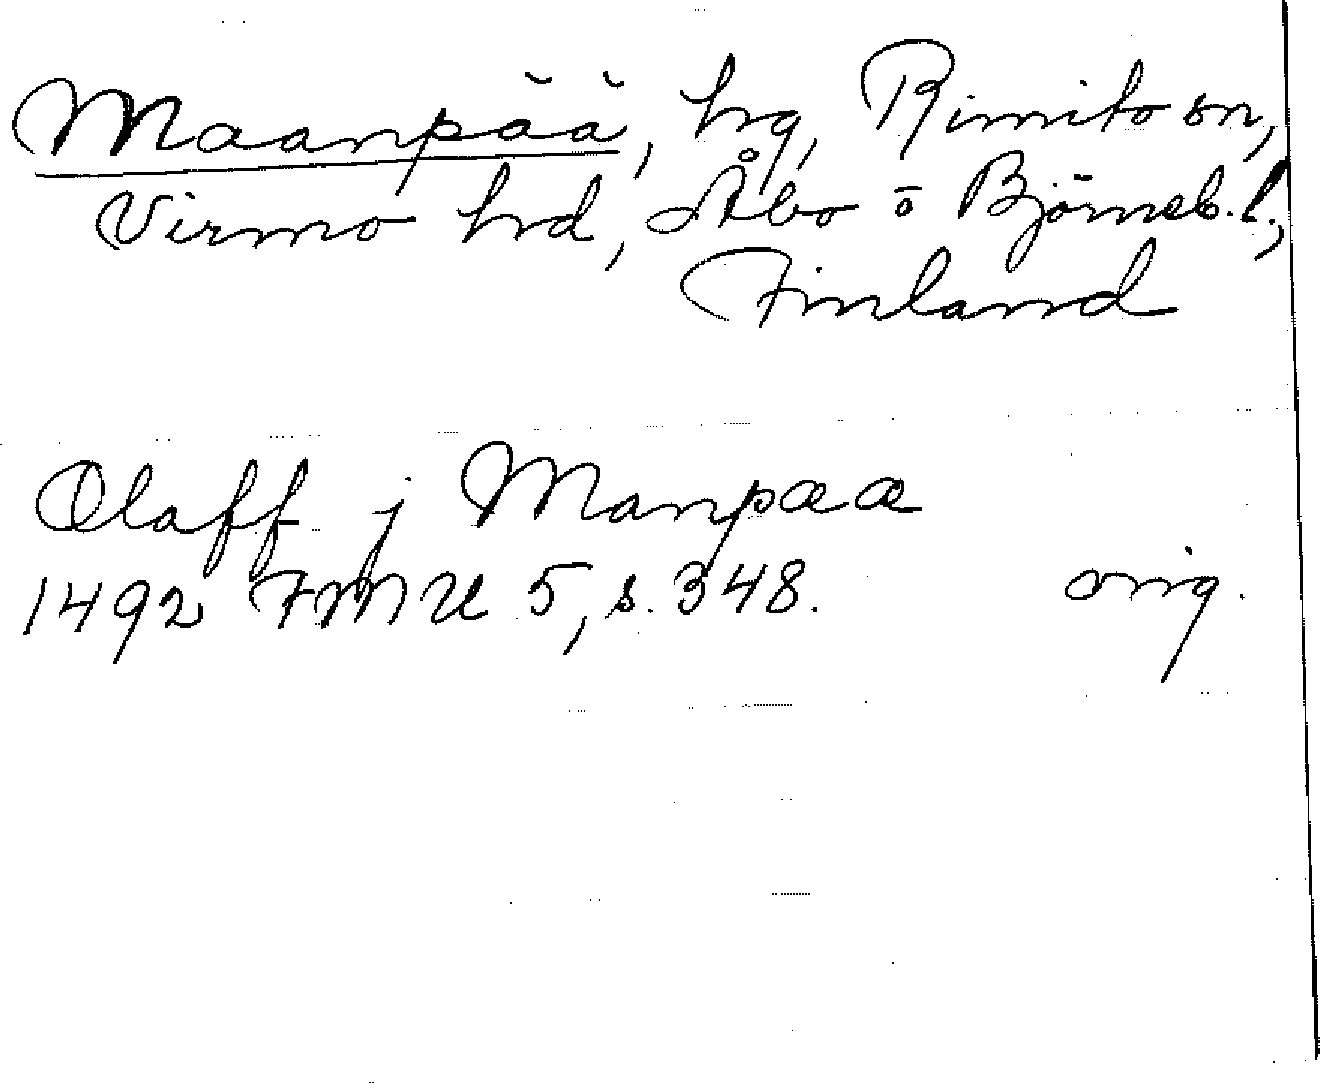 Maanpää, hg, Rimito sn,
Virmo hd, Åbo o Björneb. l.,
Finland
Olaff j Manpææ
1492 FMU 5, s. 348. orig.